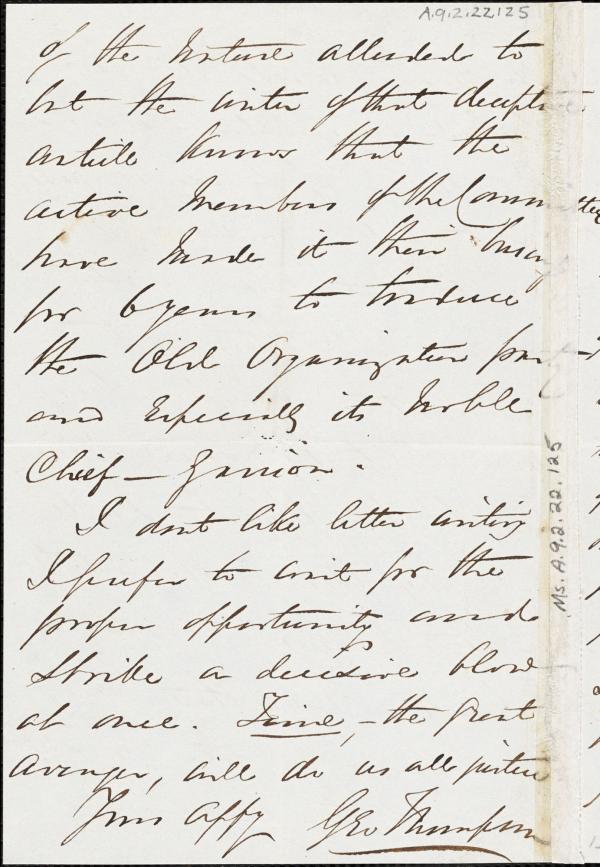 A.9.2.22.125
of the nature alluded to
but the writer of that deceptive
article knows that the
active members of the Committee
have made it their busi
for 6 years to traduce
the Old Organization party
and especially its noble
Chief — Garrison.
I dont like letter writing
I prefer to wait for the
proper opportunity and
strike a decisive blow
at once. Time, — the great
avenger, will do us all justice
Yours affy Geo Thompson
Ms. A.9.2.22.125